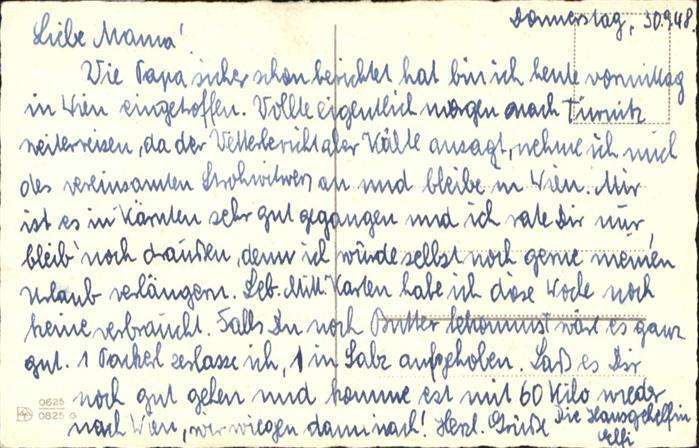 Donnerstag, 30.9.48.
Liebe Mama!
Wie Papa sicher schon berichtet hat bin ich heute vormittag
in Wien eingetroffen. Wollte eigentlich morgen nach Türnitz
weiterreisen, da der Wetterbericht aber Kälte ansagt, nehme ich mich
des vereinsamten Strohwitwers an und bleibe in Wien. Mir
ist es in Kärnten sehr gut gegangen und ich rate Dir nur,
bleib' noch draußen, denn ich würde selbst noch gerne meinen
Urlaub verlängern. Leb. Mitt. Karten habe ich diese Woche noch
keine verbraucht. Falls Du noch Butter bekommst wäre es ganz
gut. 1 Packerl zerlasse ich, 1 in Salz aufgehoben. Laß es Dir
noch gut gehen und komme erst mit 60 Kilo wieder
nach Wien, wir wiegen dann nach! Herzl. Grüße Die Hausgehilfin
Elli
0625
0825 G